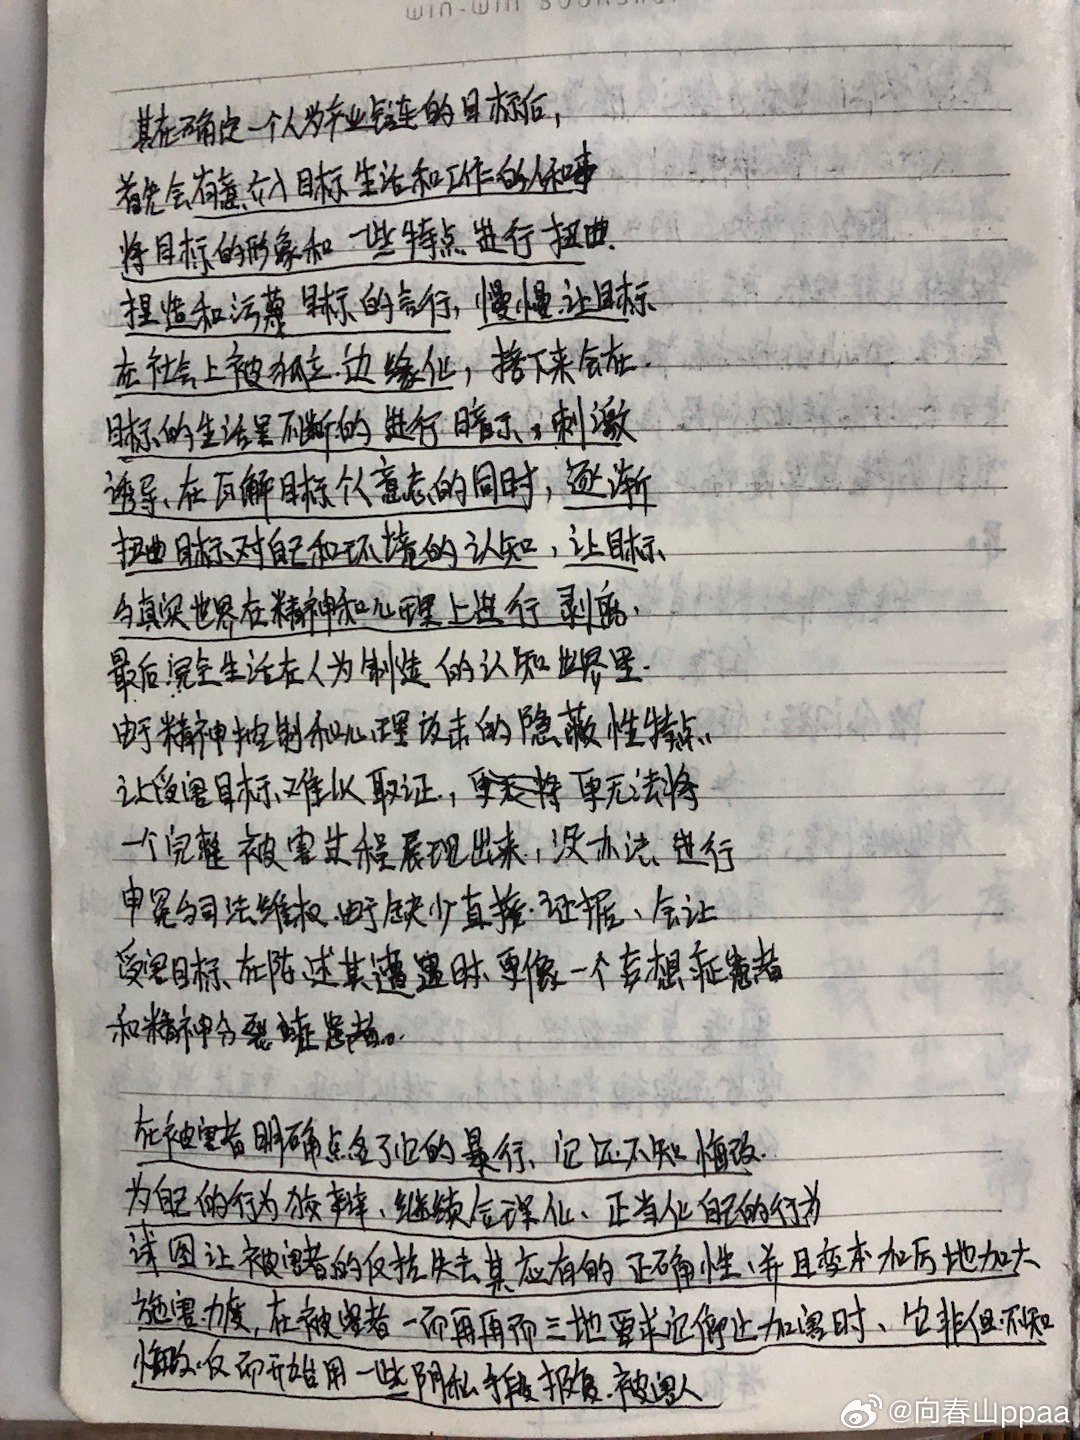 WIN-WIN BOOKSHOP
其在确定一个人为作业链的目标后，
首先会有意介入目标生活和工作的人和事
将目标的形象和一些特点进行扭曲.
捏造和污蔑目标的言行，慢慢让目标
在社会上被孤立.边缘化，接下来会在
目标的生活里不断的进行暗示、刺激
诱导、在瓦解目标个人意志的同时，逐渐
扭曲目标对自己和环境的认知，让目标
与真实世界在精神和心理上进行剥离、
最后完全生活在人为制造的认知世界里.
由于精神控制和心理攻击的隐蔽性特点、
让受害目标难以取证，更无法将
一个完整被害过程展现出来，没办法进行
申冤与司法维权.由于缺少直接证据、会让
受害目标在陈述其遭遇时更像一个妄想症患者
和精神分裂症患者。
在被害者明确点名了它的暴行、它还不知悔改.
为自己的行为狡辩、继续合理化、正当化自己的行为
试图让被害者的反抗失去其应有的正确性、并且变本加厉地加大
施害力度，在被害者一而再再而三地要求它停止加害时、它非但不知
悔改.反而开始用一些阴私手段报复被害人
@向春山ppaa